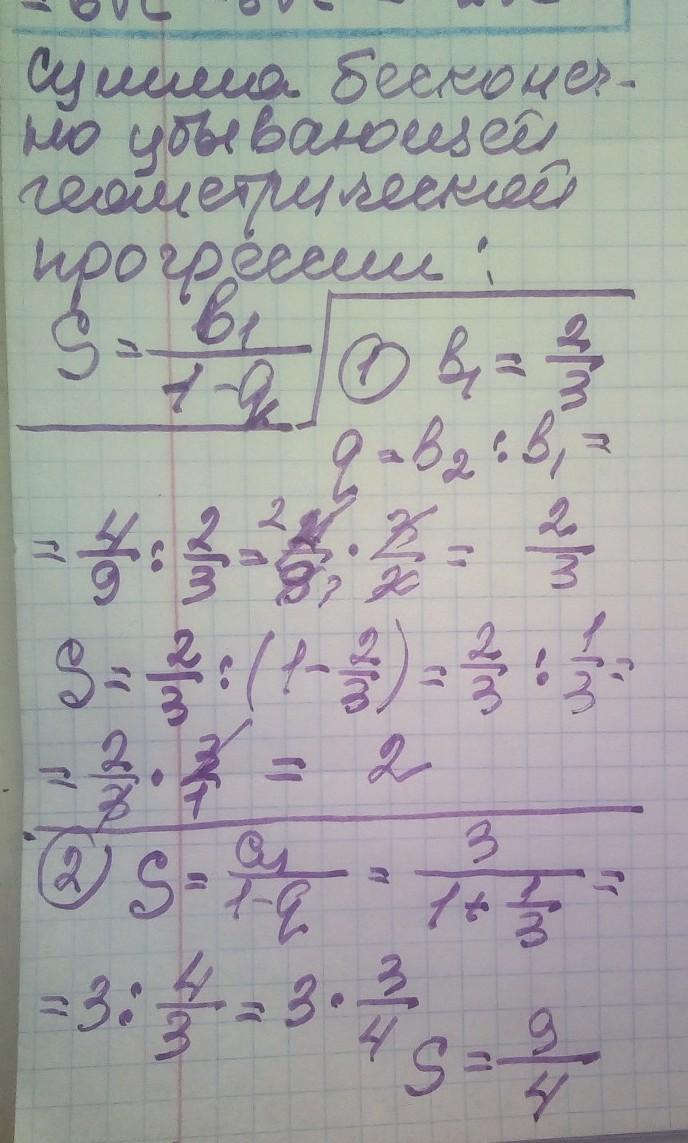 Сумма бесконеч-
но убывающей
геометрической
прогрессии :
S = b₁ / (1 - q)
① b₁ = 2/3
q = b₂ : b₁ =
= 4/9 : 2/3 = 4/9 · 3/2 = 2/3
S = 2/3 : (1 - 2/3) = 2/3 : 1/3 =
= 2/3 · 3/1 = 2
② S = a₁ / (1 - q) = 3 / (1 + 1/3) =
= 3 : 4/3 = 3 · 3/4
S = 9/4